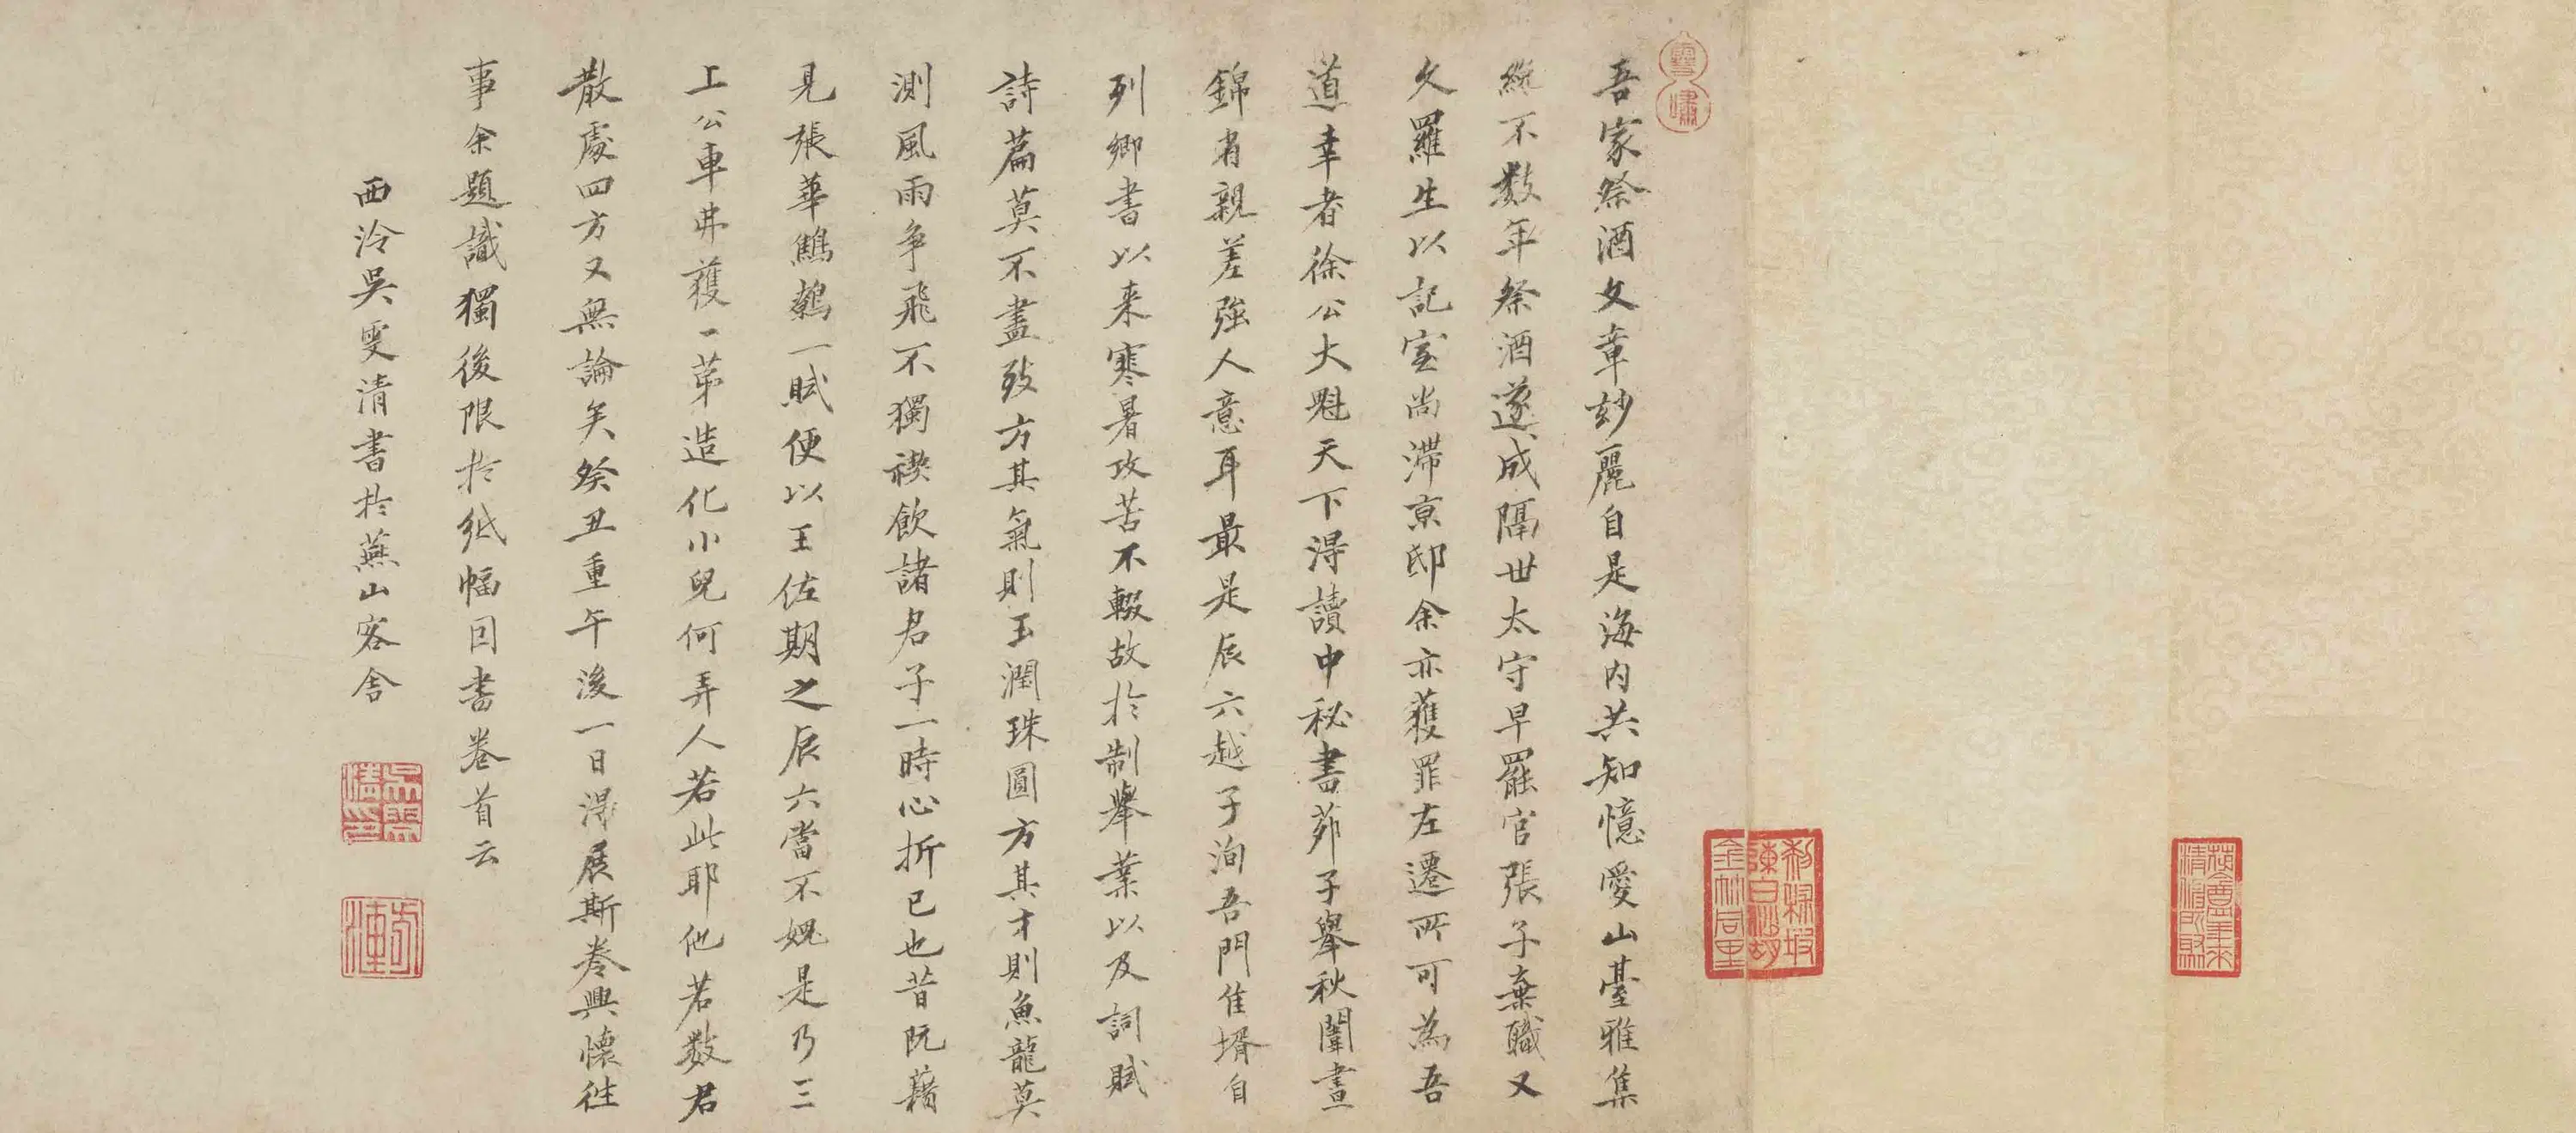 吾家祭酒文章妙麗自是海内共知憶愛山臺雅集
纔不数年祭酒遂成隔世太守早罷官張子棄職又
久羅生以記室尚滞京邸余亦獲罪左遷所可為吾
道幸者徐公大魁天下得讀中秘書茆子舉秋闈晝
錦省親差強人意耳最是辰六越子洵吾門佳壻自
列卿書以来寒暑攻苦不輟故於制舉業以及詞賦
詩篇莫不盡致方其氣則玉潤珠圓方其才則魚龍莫
測風雨争飛不獨禊飲諸君子一時心折已也昔阮籍
見張華鷦鷯一賦便以王佐期之辰六當不媿是乃三
上公車弗獲一第造化小兒何弄人若此耶他若数君
散處四方又無論矣癸丑重午後一日得展斯卷興懷往
事余題識獨後限於紙幅因書卷首云
西泠吳雯清書於燕山客舎
雪嘯
吳雯清印